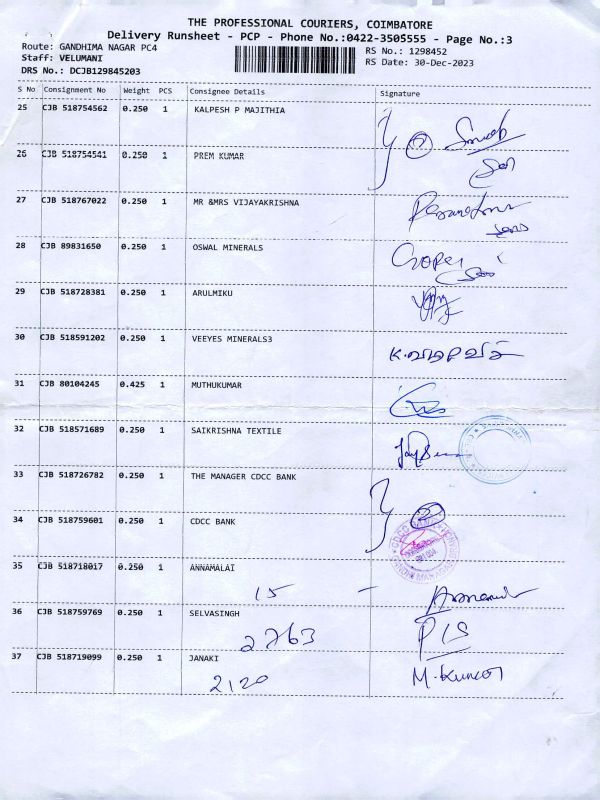 THE PROFESSIONAL COURIERS, COIMBATORE
Delivery Runsheet - PCP - Phone No.:0422-3505555 - Page No.:3
Route: GANDHIMA NAGAR PC4
RS No.: 1298452
Staff: VELUMANI
RS Date: 30-Dec-2023
DRS No.: DCJB129845203
S No Consignment No Weight PCS Consignee Details Signature
25 CJB 518754562 0.250 1 KALPESH P MAJITHIA
2
26 CJB 518754541 0.250 1 PREM KUMAR
27 CJB 518767022 0.250 1 MR &MRS VIJAYAKRISHNA
28 CJB 89831650 0.250 1 OSWAL MINERALS
29 CJB 518728381 0.250 1 ARULMIKU
30 CJB 518591202 0.250 1 VEEYES MINERALS3
31 CJB 80104245 0.425 1 MUTHUKUMAR
32 CJB 518571689 0.250 1 SAIKRISHNA TEXTILE
33 CJB 518726782 0.250 1 THE MANAGER CDCC BANK
2
34 CJB 518759601 0.250 1 CDCC BANK
35 CJB 518718017 0.250 1 ANNAMALAI
15 -
36 CJB 518759769 0.250 1 SELVASINGH
2763
37 CJB 518719099 0.250 1 JANAKI
2120 M.Kumar